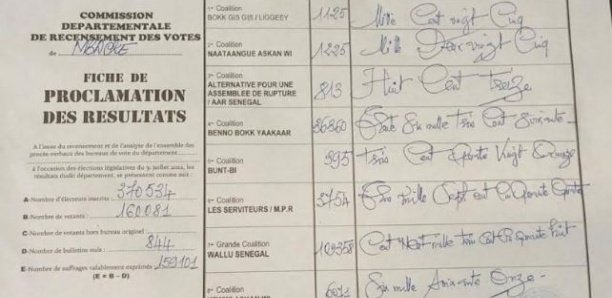 COMMISSION
DEPARTEMENTALE
DE RECENSEMENT DES VOTES
de MBACKE
FICHE DE
PROCLAMATION
DES RESULTATS
A l'issue du recensement et de l'analyse de l'ensemble des
procès-verbaux des bureaux de vote du département
à l'occasion des élections législatives du 31 juillet 2022, les
résultats dudit département, se présentent comme suit :
A- Nombre d'électeurs inscrits : 370534
B- Nombre de votants : 160081
C- Nombre de votants hors bureau originel :
D- Nombre de bulletins nuls : 844
E- Nombre de suffrages valablement exprimés 159101
(E = B – D)
1re Coalition
BOKK GIS GIS / LIGGEEY
1125
Mille Cent vingt Cinq
2e Coalition
NAATAANGUE ASKAN WI
1225
Mille Deux vingt Cinq
3e Coalition
ALTERNATIVE POUR UNE
ASSEMBLEE DE RUPTURE
/ AAR SENEGAL
813
Huit Cent Treize
4e Coalition
BENNO BOKK YAAKAAR
36360
Six mille Trois Cent Soixante
5e Coalition
BUNT-BI
395
Trois Cent Quatre Vingt Quinze
6e Coalition
LES SERVITEURS / M.P.R
3754
Trois mille Sept Cent Cinquante Quatre
7e Grande Coalition
WALLU SENEGAL
109358
Cent Neuf mille Trois Cent Cinquante huit
8e Coalition
6071
Six mille Soixante Onze